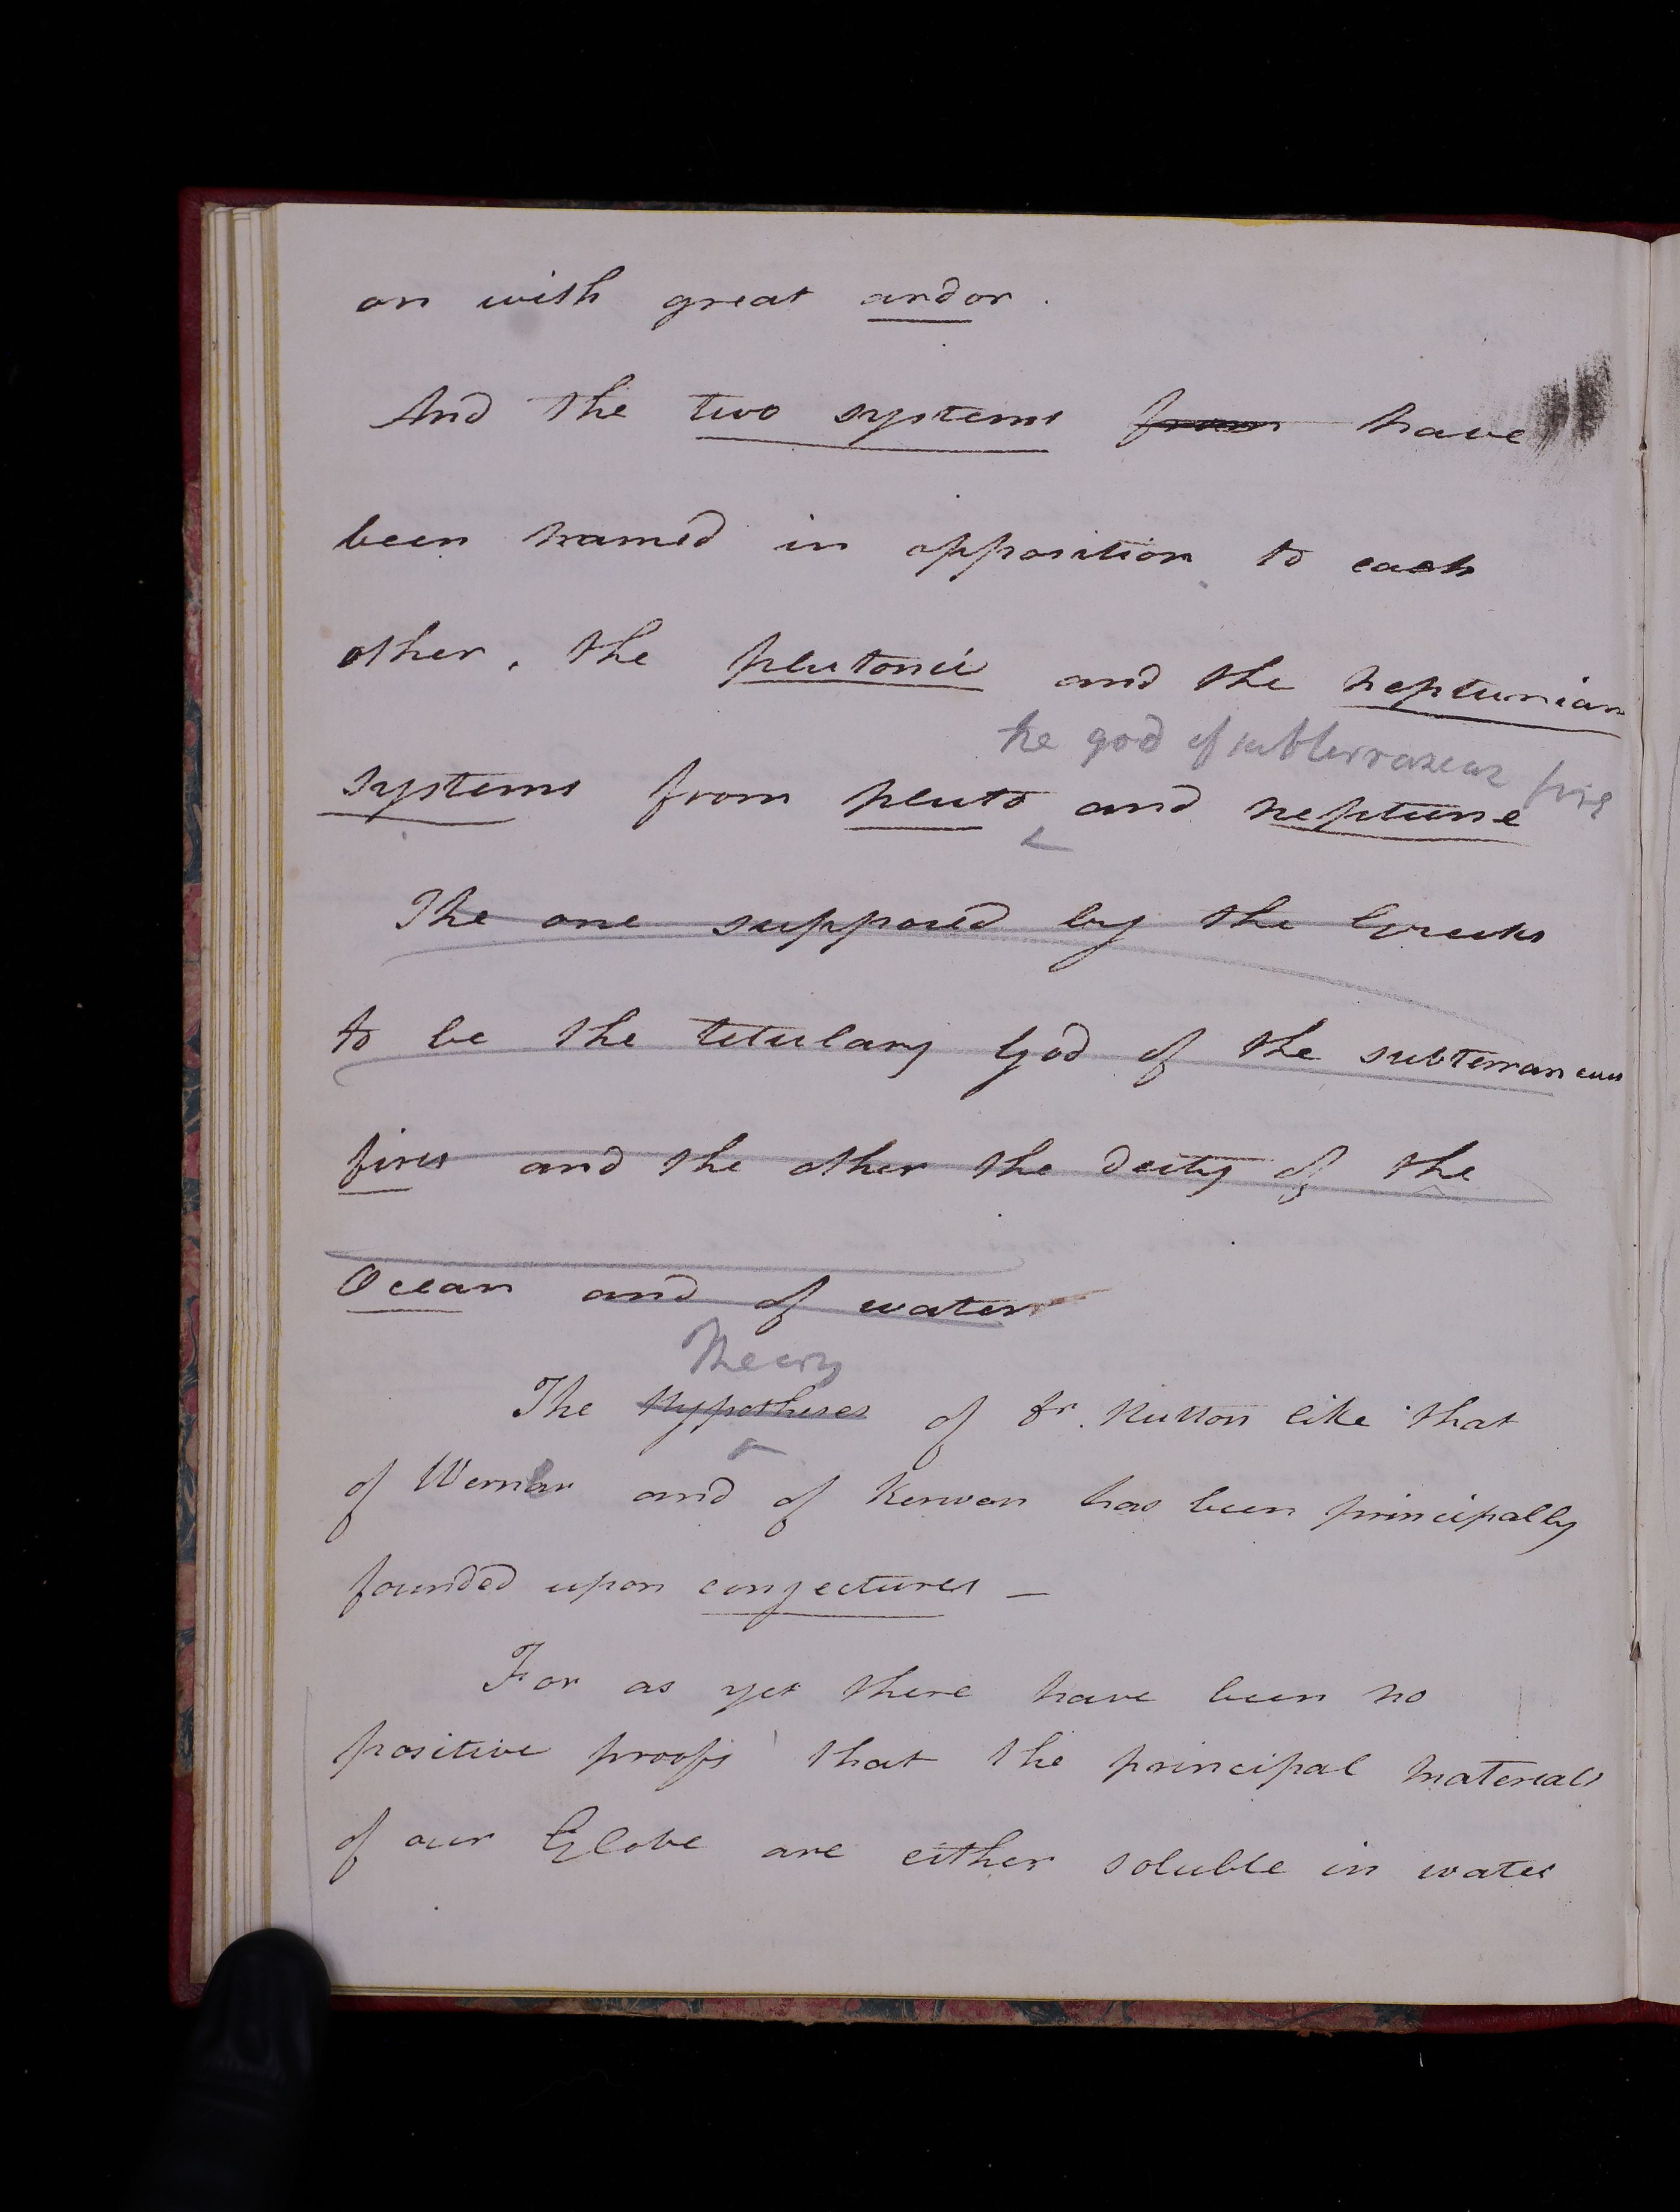 on with great ardor.
And the two systems from have
been named in opposition to each
other, the plutonic and the neptunian
the god of subterranean fire
systems from pluto and neptune
The one supposed by the Greeks
to be the tetulary God of the subterraneous
fires and the other the deity of the
Ocean and of water
Theory
The Hypotheses of Dr. Hutton like that
of Werner and of Kerwan has been principally
founded upon conjectures –
For as yet there have been no
positive proofs that the principal materials
of our Globe are either soluble in water